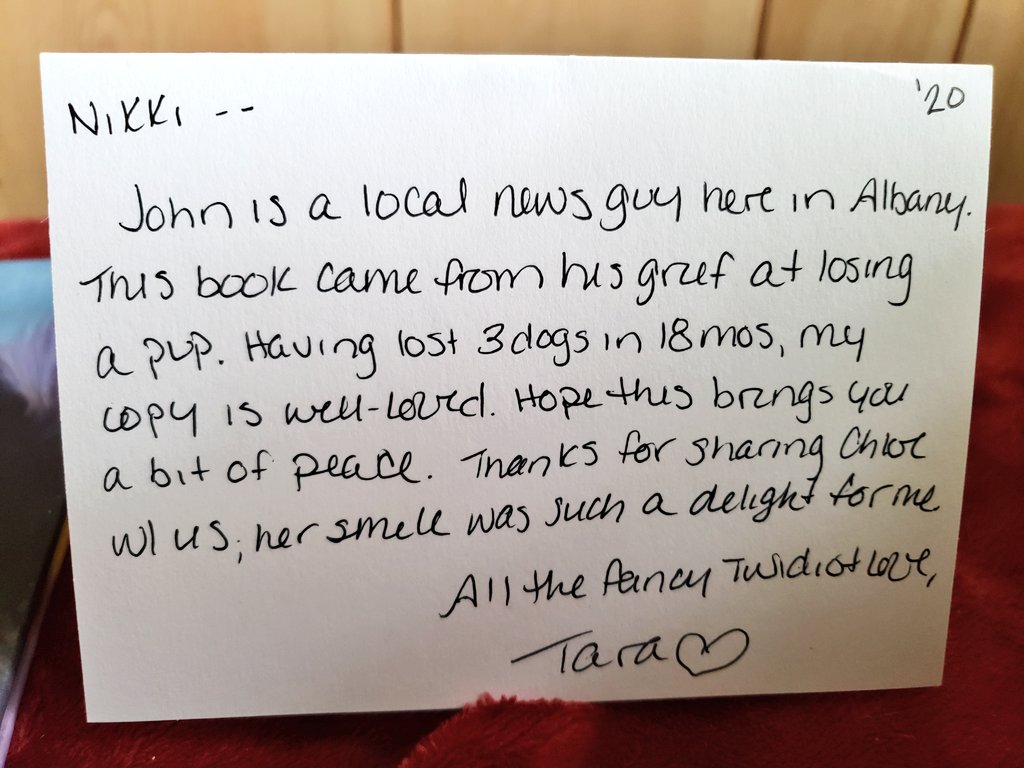 Nikki --
'20
John is a local news guy here in Albany.
This book came from his grief at losing
a pup. Having lost 3 dogs in 18 mos, my
copy is well-loved. Hope this brings you
a bit of peace. Thanks for sharing Chloe
w/ us; her smile was such a delight for me.
All the fancy Twidiot Love,
Tara